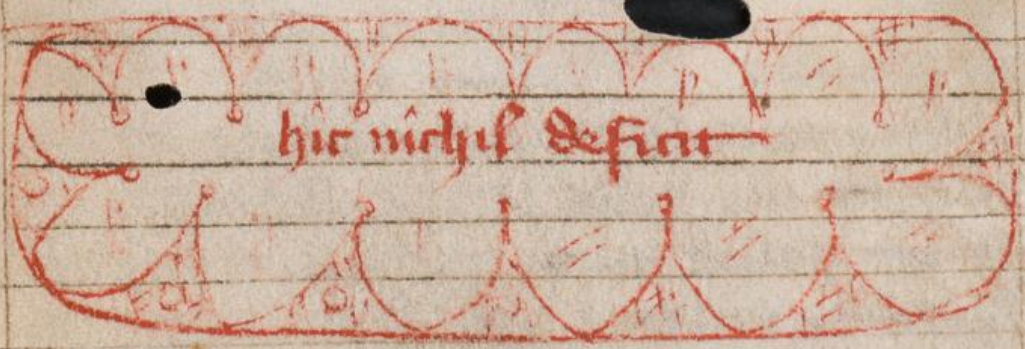 hic nichil deficit